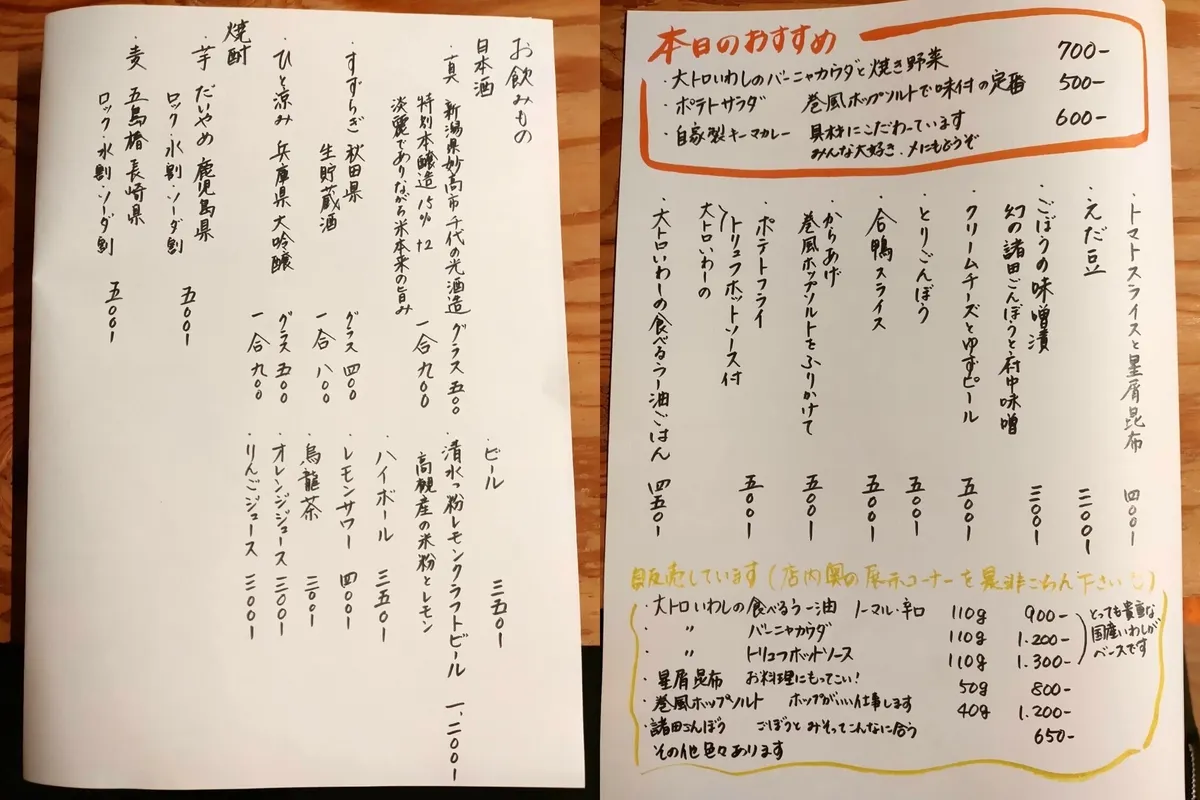 お飲みもの
日本酒
・真 新潟県妙高市 千代の光酒造 グラス 五〇〇
特別本醸造 15% +2 一合 九〇〇
淡麗でありながら米本来の旨み
・すずらぎ 秋田県 グラス 四〇〇
生貯蔵酒 一合 八〇〇
・ひと涼み 兵庫県 大吟醸 グラス 五〇〇
一合 九〇〇
焼酎
・芋 だいやめ 鹿児島県
ロック・水割・ソーダ割 五〇〇ー
・麦 五島椿 長崎県
ロック・水割・ソーダ割 五〇〇ー
・ビール 三五〇ー
・清水っ粉レモンクラフトビール 一、二〇〇ー
高槻産の米粉とレモン
・ハイボール 三五〇ー
・レモンサワー 四〇〇ー
・烏龍茶 二〇〇ー
・オレンジジュース 三〇〇ー
・りんごジュース 三〇〇ー
本日のおすすめ
・大トロいわしのバーニャカウダと焼き野菜 700-
・ポテトサラダ 巻風ホップソルトで味付の定番 500-
・自家製キーマカレー 具材にこだわっています 600-
みんな大好き、〆にもどうぞ
・トマトスライスと星屑昆布 四〇〇ー
・えだ豆 二〇〇ー
・ごぼうの味噌漬 三〇〇ー
幻の諸田ごんぼうと府中味噌
・クリームチーズとゆずピール 五〇〇ー
・とりごんぼう 五〇〇ー
・合鴨スライス 五〇〇ー
・からあげ 五〇〇ー
巻風ホップソルトをふりかけて
・ポテトフライ 五〇〇ー
トリュフホットソース付
大トロいわしの
・大トロいわしの食べるラー油ごはん 四五〇ー
販売しています(店内奥の展示コーナーを是非ごらん下さい)
・大トロいわしの食べるラー油 ノーマル・辛口 110g 900-
・ 〃 バーニャカウダ 110g 1.200-
・ 〃 トリュフホットソース 110g 1.300-
とっても貴重な
国産いわしが
ベースです
・星屑昆布 お料理にもってこい! 50g 800-
・巻風ホップソルト ホップがいい仕事します 40g 1.200-
・諸田ごんぼう ごぼうとみそってこんなに合う 650-
その他色々あります